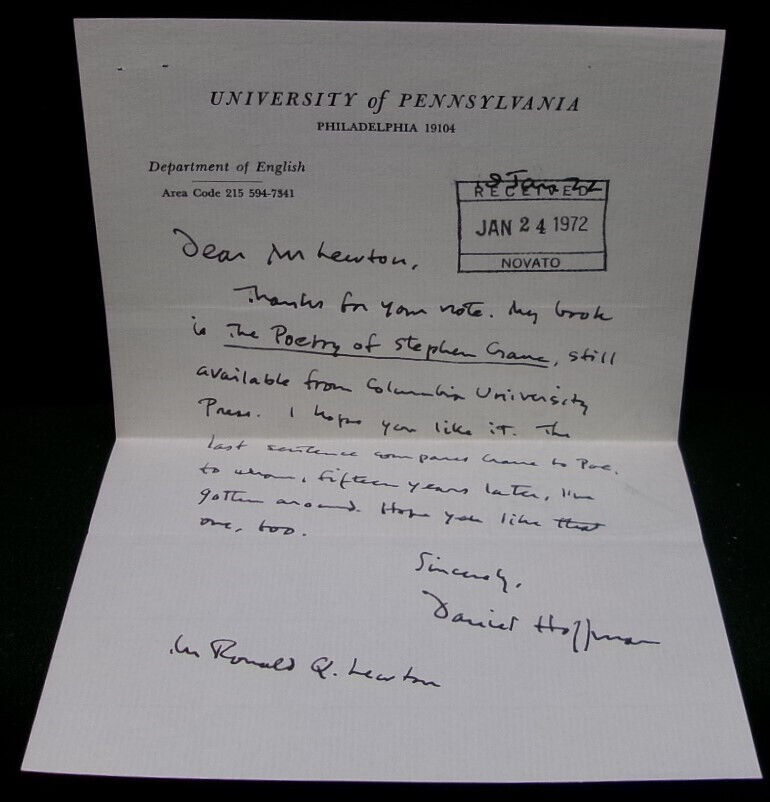 UNIVERSITY of PENNSYLVANIA
PHILADELPHIA 19104
Department of English
Area Code 215 594-7341
Jan 22
RECEIVED
JAN 24 1972
NOVATO
Dear Mr Lewton,
Thanks for your note. My book
is The Poetry of Stephen Crane, still
available from Columbia University
Press. I hope you like it. The
last sentence compares Crane to Poe,
to whom, fifteen years later, I've
gotten around. Hope you like that
one, too.
Sincerely,
Daniel Hoffman
Mr Ronald Q. Lewton